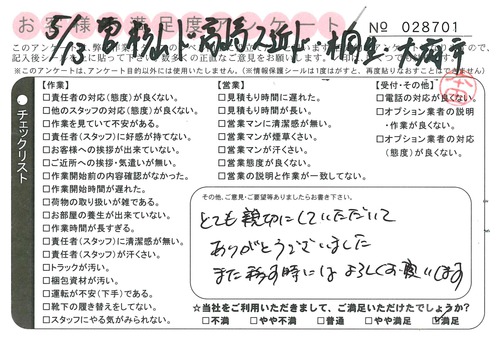 お客様満足度アンケート
№ 028701
5/13
【作業】
□責任者の対応(態度)が良くない。
□他のスタッフの対応(態度)が良くない。
□作業を見ていて不安がある。
□責任者(スタッフ)に好感が持てない。
□お客様への挨拶が出来ていない。
□ご近所への挨拶・気遣いが無い。
□作業開始前の内容確認がなかった。
□作業開始時間が遅れた。
□荷物の取り扱いが雑である。
□お部屋の養生が出来ていない。
□作業時間が長すぎる。
□責任者(スタッフ)に清潔感が無い。
□責任者(スタッフ)が汗くさい。
□トラックが汚い。
□梱包資材が汚い。
□運転が不安(下手)である。
□靴下の履き替えをしてない。
□スタッフにやる気がみられない。
【営業】
□見積もり時間に遅れた。
□見積もり時間が長い。
□営業マンに清潔感が無い。
□営業マンが煙草くさい。
□営業マンが汗くさい。
□営業態度が良くない。
□営業の説明と作業が一致してない。
【受付・その他】
□電話の対応が良くない。
□オプション業者の説明
・作業が良くない。
□オプション業者の対応
(態度)が良くない。
チェックリスト
その他、ご意見・ご要望等ありましたらお書き下さい。
とても親切にしていただいて
ありがとうございました
また移す時にはよろしくお願いします
☆当社をご利用いただきまして、ご満足いただけたでしょうか?
□不満 □やや不満 □普通 □やや満足 □満足